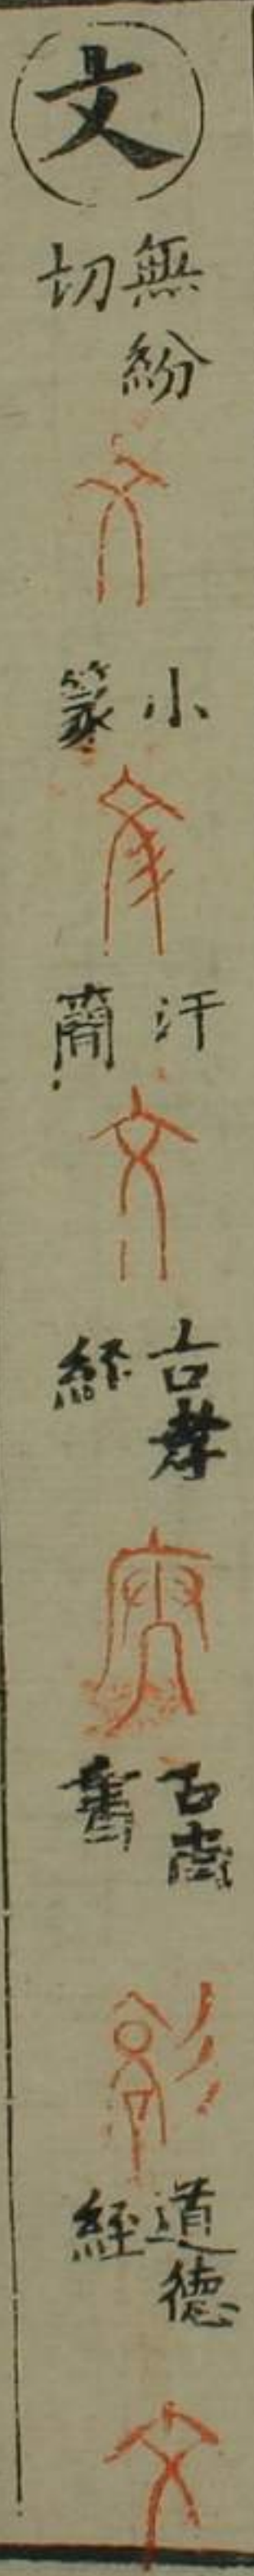 文
無紛切
小篆
汗簡
古孝經
古尚書
道德經